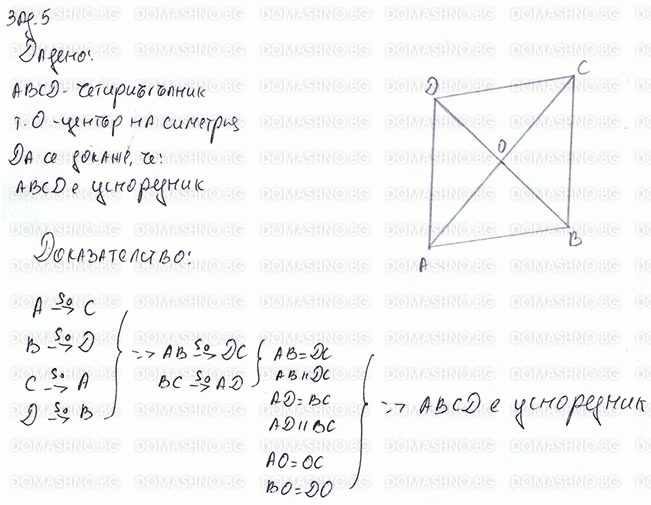 Зад. 5
Дадено:
ABCD - четириъгълник
т. O - център на симетрия
Да се докаже, че:
ABCD е успоредник
D
C
O
A
B
Доказателство:
A S₀→ C
B S₀→ D
C S₀→ A
D S₀→ B
=> AB S₀→ DC
BC S₀→ AD
AB = DC
AB || DC
AD = BC
AD || BC
AO = OC
BO = DO
=> ABCD е успоредник
DOMASHNO.BG